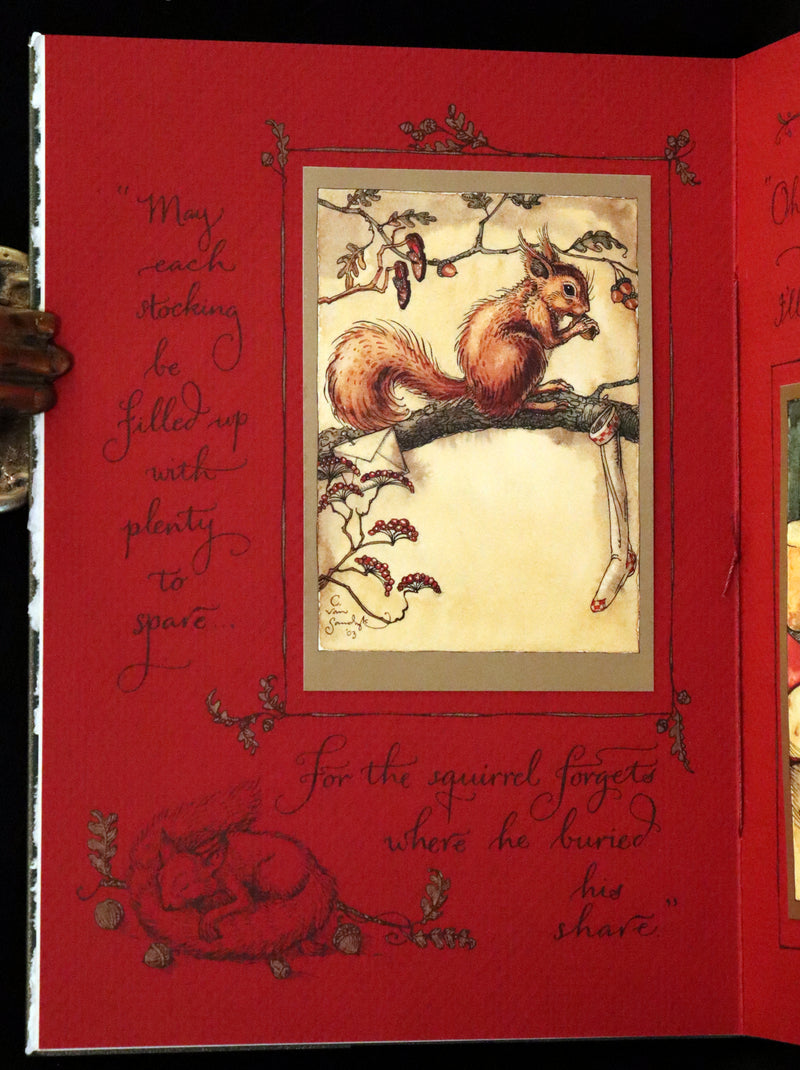 "May
each
stocking
be
filled up
with
plenty
to
spare...
C.
van
Sandyk
'03
For the squirrel forgets
where he buried
his
share."
"Oh
I'll